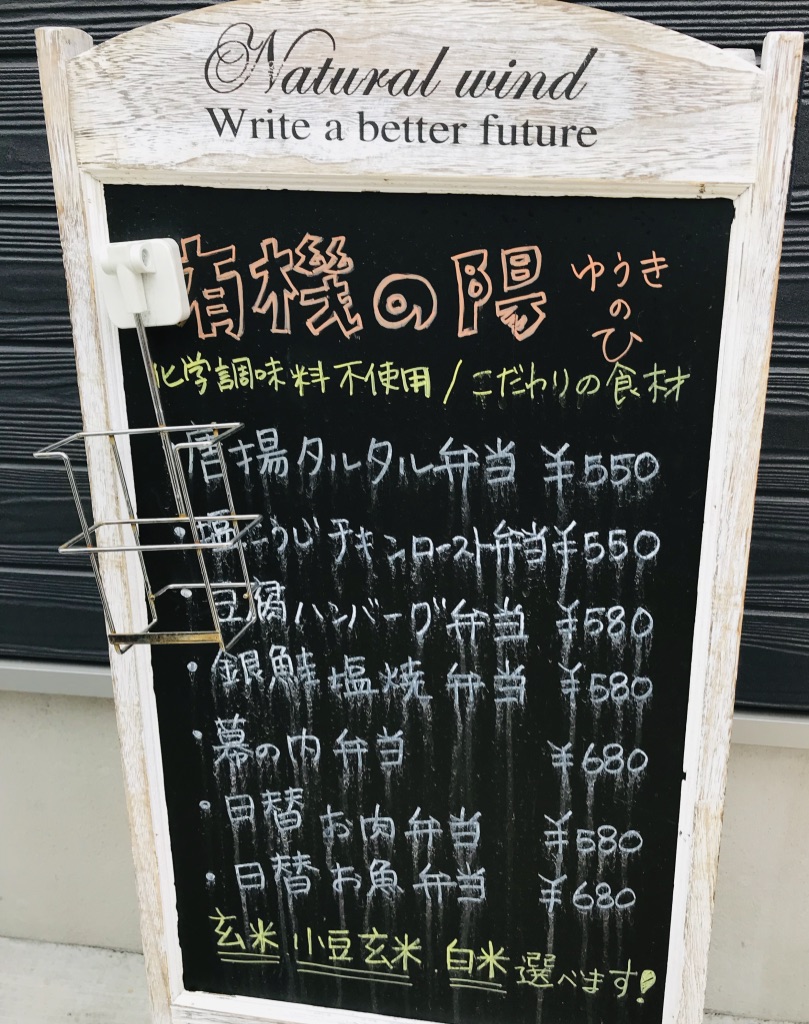 Natural wind
Write a better future
有機の陽 ゆうきのひ
化学調味料不使用/こだわりの食材
唐揚タルタル弁当 ¥550
・塩こうじチキンロースト弁当¥550
・豆腐ハンバーグ弁当 ¥580
・銀鮭塩焼弁当 ¥580
・幕の内弁当 ¥680
・日替お肉弁当 ¥580
・日替お魚弁当 ¥680
玄米 小豆玄米 白米選べます!